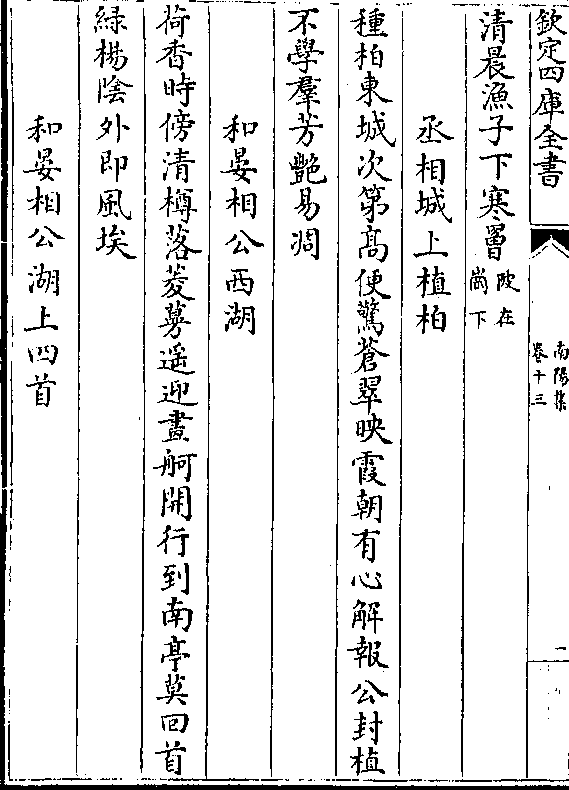 欽定四庫全書
南陽集
卷十三
清晨漁子下寒罾陂在
崗下
丞相城上植柏
種柏東城次第高便驚蒼翠映霞朝有心解報公封植
不學羣芳艷易凋
和晏相公西湖
荷香時傍清樽落菱蔓遥迎畫舸開行到南亭莫回首
緑楊陰外即風埃
和晏相公湖上四首